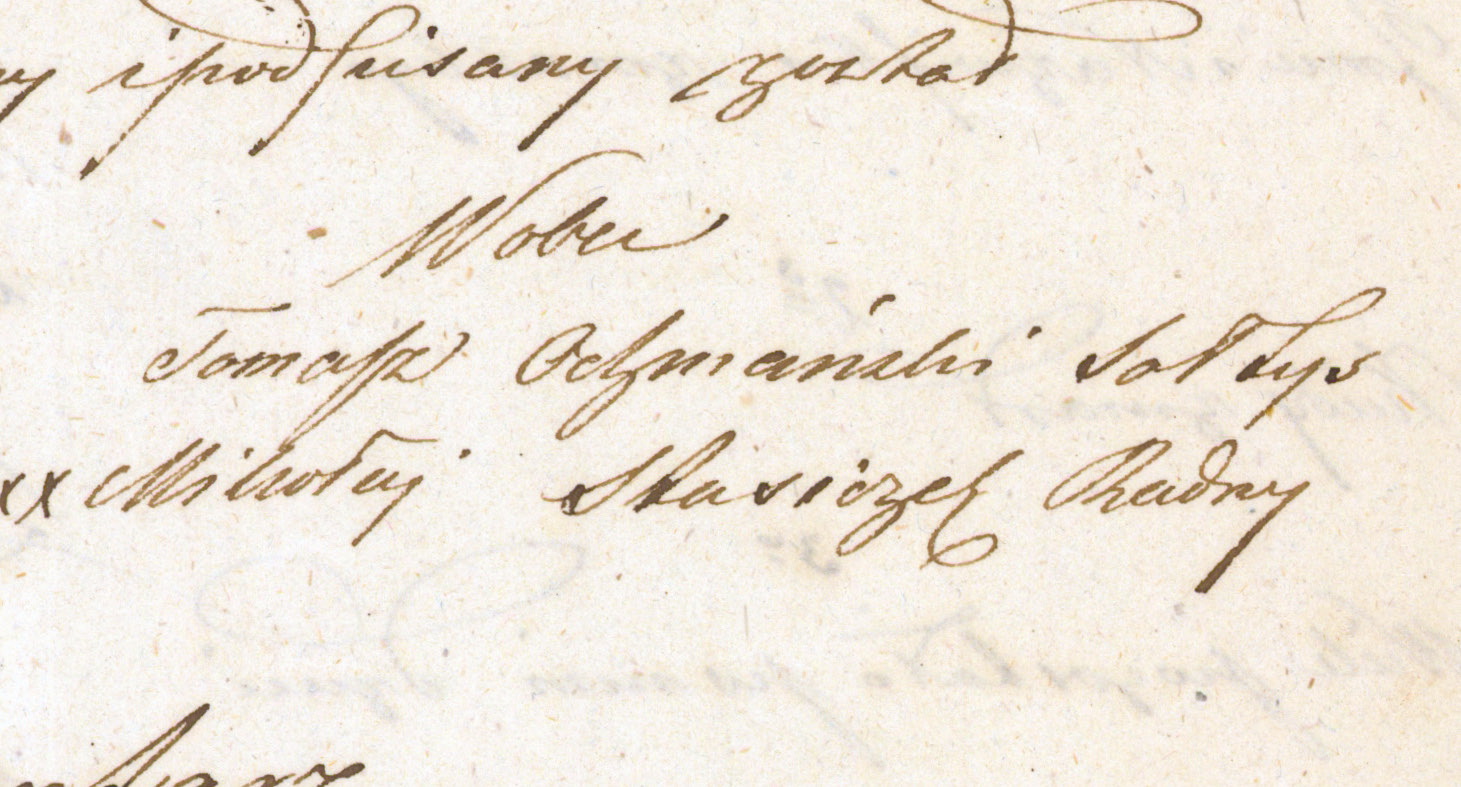 i podpisany został
Wober
Tomasz Ochmański Sołtys
xx Mikołaj Stasiczek Radny